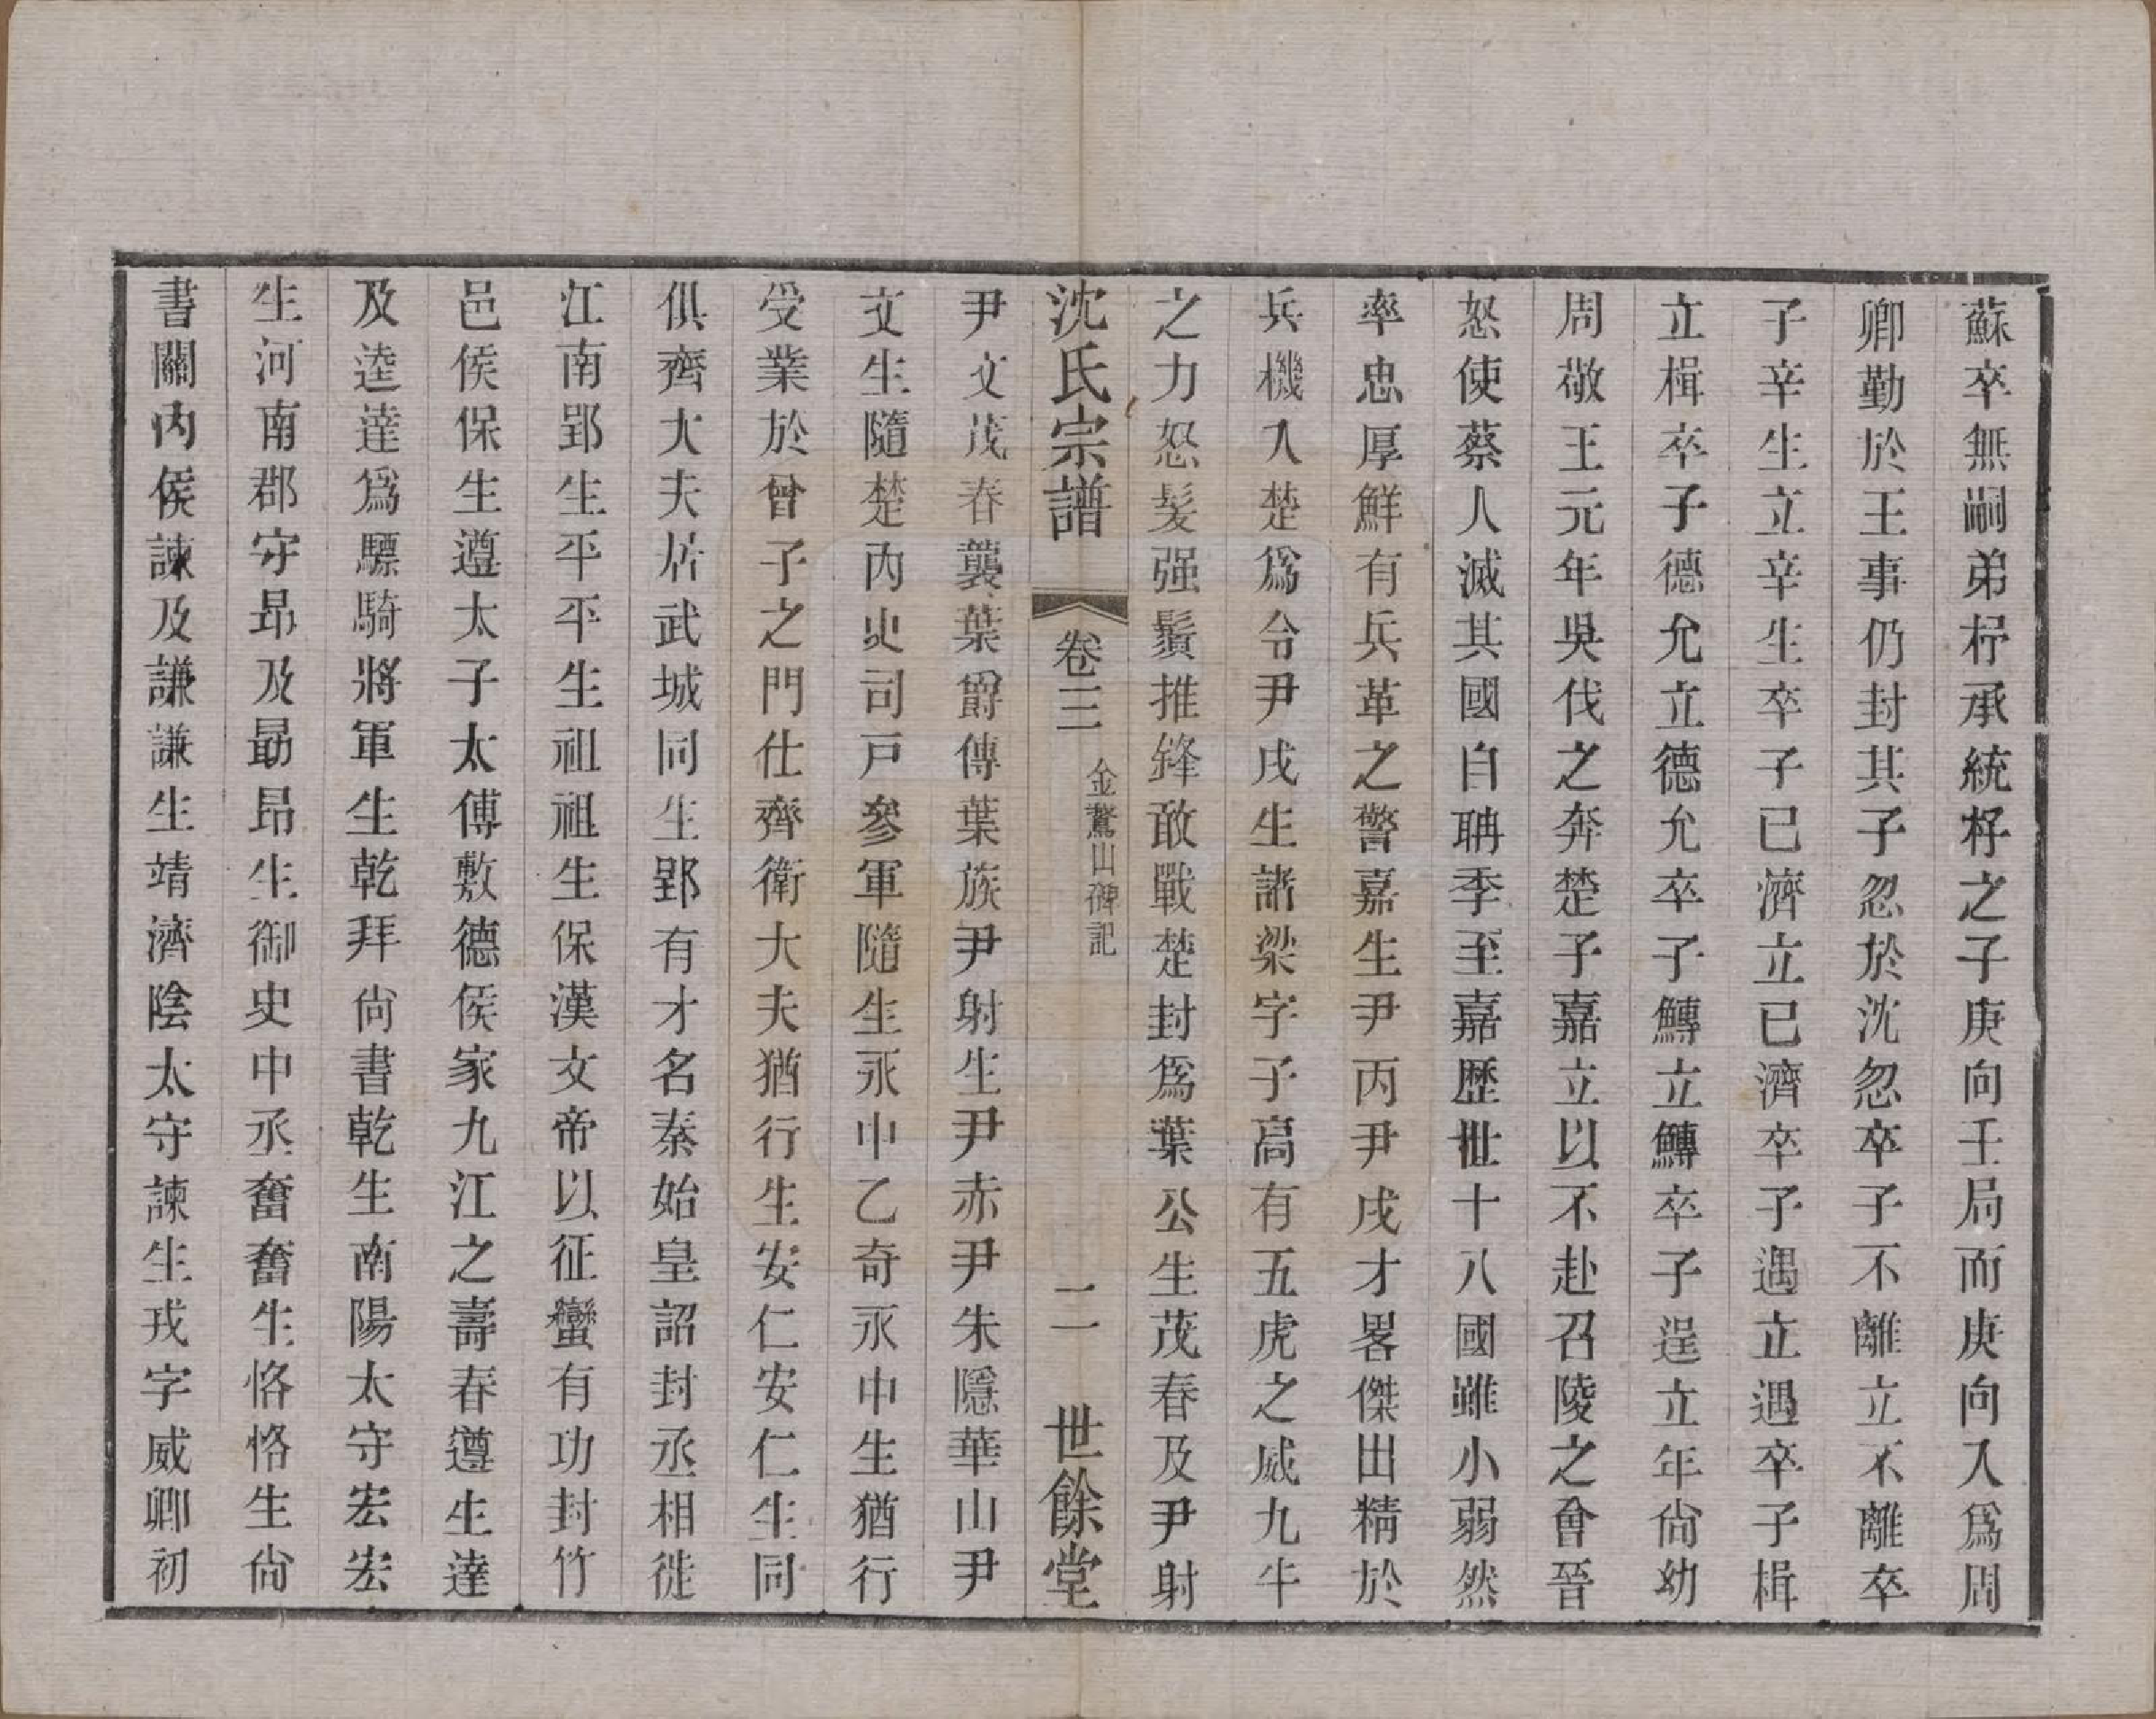 蘇卒無嗣弟杼承統杼之子庚向壬局而庚向入爲周
卿勤於王事仍封其子忽於沈忽卒子不離立不離卒
子辛生立辛生卒子已濟立已濟卒子遇立遇卒子楫
立楫卒子德允立德允卒子鱄立鱄卒子逞立年尙幼
周敬王元年吳伐之奔楚子嘉立以不赴召陵之會晉
怒使蔡人滅其國自聃季至嘉歷世十八國雖小弱然
率忠厚鮮有兵革之警嘉生尹丙尹戌才畧傑出精於
兵機入楚爲令尹戌生諸梁字子高有五虎之威九牛
之力怒髮强鬚推鋒敢戰楚封爲葉公生茂春及尹射
沈氏宗譜 卷三 金鵞山碑記 二 世餘堂
尹文茂春襲葉爵傳葉族尹射生尹赤尹朱隱華山尹
文生隨楚內史司戸參軍隨生永中乙奇永中生猶行
受業於曾子之門仕齊衛大夫猶行生安仁安仁生同
俱齊大夫居武城同生郢郢有才名秦始皇詔封丞相徙
江南郢生平平生祖祖生保漢文帝以征蠻有功封竹
邑侯保生遵太子太傅敷德侯家九江之壽春遵生達
及逵達爲驃騎將軍生乾拜尙書乾生南陽太守宏宏
生河南郡守昂及勗昂生御史中丞奮奮生恪恪生尙
書關內侯諫及謙謙生靖濟陰太守諫生戎字威卿初